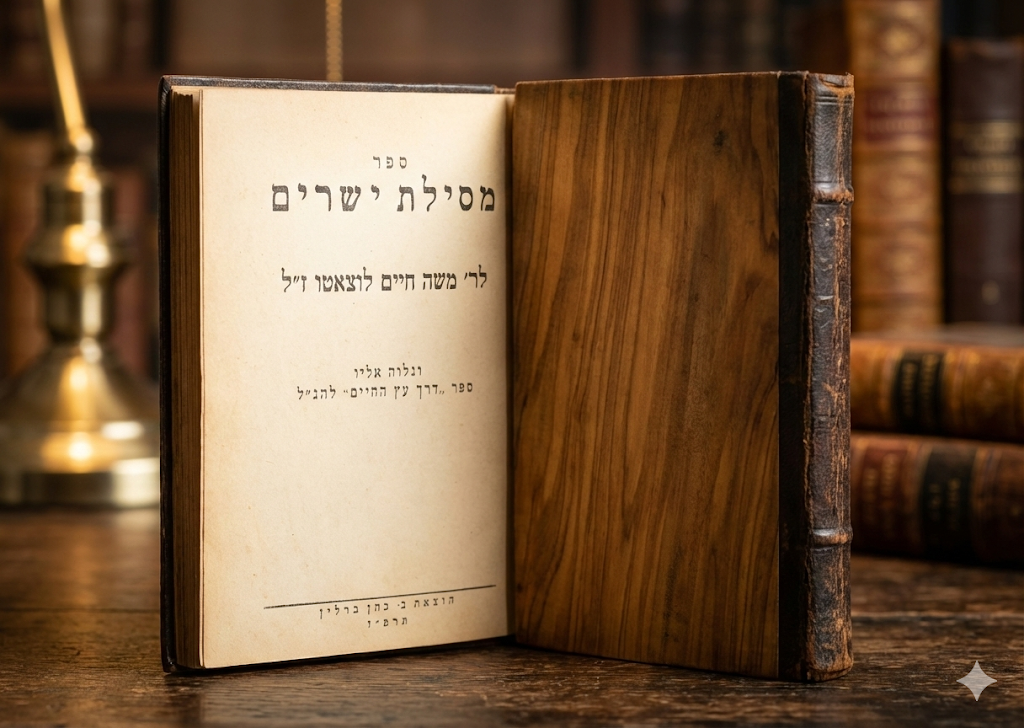 ספר
מסילת ישרים
לר׳ משה חיים לוצאטו ז״ל
ונלוה אליו
ספר „דרך עץ החיים״ להנ״ל
הוצאת ב. כהן ברלין
תרפ״ז